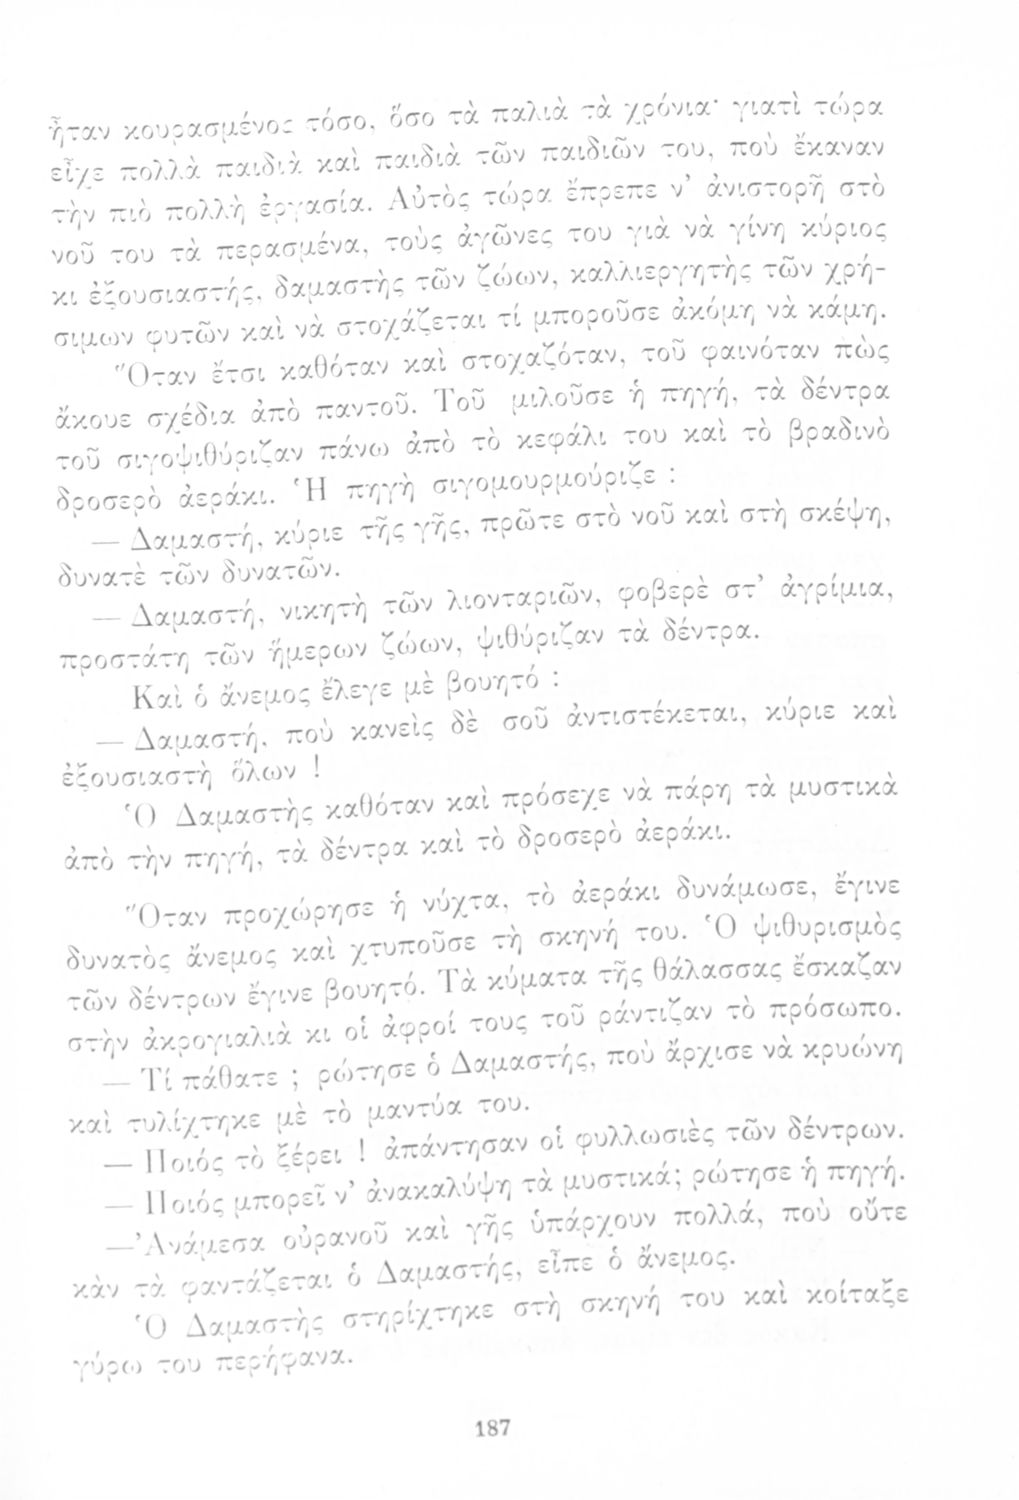 ἦταν κουρασμένος τόσο, ὅσο τὰ παλιὰ τὰ χρόνια· γιατὶ τώρα
εἶχε πολλὰ παιδιὰ καὶ παιδιὰ τῶν παιδιῶν του, ποὺ ἔκαναν
τὴν πιὸ πολλὴ ἐργασία. Αὐτὸς τώρα ἔπρεπε ν’ ἀνιστορῆ στὸ
νοῦ του τὰ περασμένα, τοὺς ἀγῶνες του γιὰ νὰ γίνη κύριος
κι ἐξουσιαστής, δαμαστὴς τῶν ζώων, καλλιεργητὴς τῶν χρή-
σιμων φυτῶν καὶ νὰ στοχάζεται τί μποροῦσε ἀκόμη νὰ κάμη.
Ὅταν ἔτσι καθόταν καὶ στοχαζόταν, τοῦ φαινόταν πὼς
ἄκουε σχέδια ἀπὸ παντοῦ. Τοῦ μιλοῦσε ἡ πηγή, τὰ δέντρα
τοῦ σιγοψιθύριζαν πάνω ἀπὸ τὸ κεφάλι του καὶ τὸ βραδινὸ
δροσερὸ ἀεράκι. Ἡ πηγὴ σιγομουρμούριζε :
— Δαμαστή, κύριε τῆς γῆς, πρῶτε στὸ νοῦ καὶ στὴ σκέψη,
δυνατὲ τῶν δυνατῶν.
— Δαμαστή, νικητὴ τῶν λιονταριῶν, φοβερὲ στ’ ἀγρίμια,
προστάτη τῶν ἥμερων ζώων, ψιθύριζαν τὰ δέντρα.
Καὶ ὁ ἄνεμος ἔλεγε μὲ βουητό :
— Δαμαστή, ποὺ κανεὶς δὲ σοῦ ἀντιστέκεται, κύριε καὶ
ἐξουσιαστὴ ὅλων !
Ὁ Δαμαστὴς καθόταν καὶ πρόσεχε νὰ πάρη τὰ μυστικὰ
ἀπὸ τὴν πηγή, τὰ δέντρα καὶ τὸ δροσερὸ ἀεράκι.
Ὅταν προχώρησε ἡ νύχτα, τὸ ἀεράκι δυνάμωσε, ἔγινε
δυνατὸς ἄνεμος καὶ χτυποῦσε τὴ σκηνή του. Ὁ ψιθυρισμὸς
τῶν δέντρων ἔγινε βουητό. Τὰ κύματα τῆς θάλασσας ἔσκαζαν
στὴν ἀκρογιαλιὰ κι οἱ ἀφροί τους τοῦ ράντιζαν τὸ πρόσωπο.
— Τί πάθατε ; ρώτησε ὁ Δαμαστής, ποὺ ἄρχισε νὰ κρυώνη
καὶ τυλίχτηκε μὲ τὸ μαντύα του.
— Ποιός τὸ ξέρει ! ἀπάντησαν οἱ φυλλωσιὲς τῶν δέντρων.
— Ποιός μπορεῖ ν’ ἀνακαλύψη τὰ μυστικά; ρώτησε ἡ πηγή.
—Ἀνάμεσα οὐρανοῦ καὶ γῆς ὑπάρχουν πολλά, ποὺ οὔτε
κἂν τὰ φαντάζεται ὁ Δαμαστής, εἶπε ὁ ἄνεμος.
Ὁ Δαμαστὴς στηρίχτηκε στὴ σκηνή του καὶ κοίταξε
γύρω του περήφανα.
187